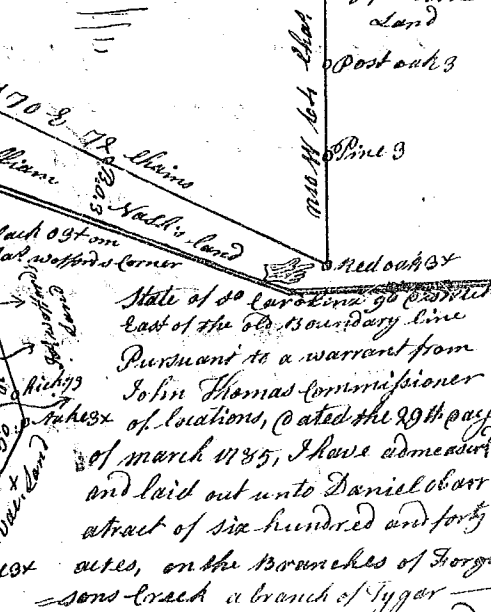 Land
Post oak 3
Pine 3
70 E 78 chains
B.O.3
Nash's land
Red oak 3x
Black O 3x on
Wofford's Corner
State of So Carolina 96 District
East of the old Boundary line
Pursuant to a warrant from
John Thomas Commissioner
of locations, Dated the 29th day
of march 1785, I have admeasur
and laid out unto Daniel obarr
atract of six hundred and forty
acres, on the Branches of Forgu
sons Creek a branch of Tygar
Hick 3
Land